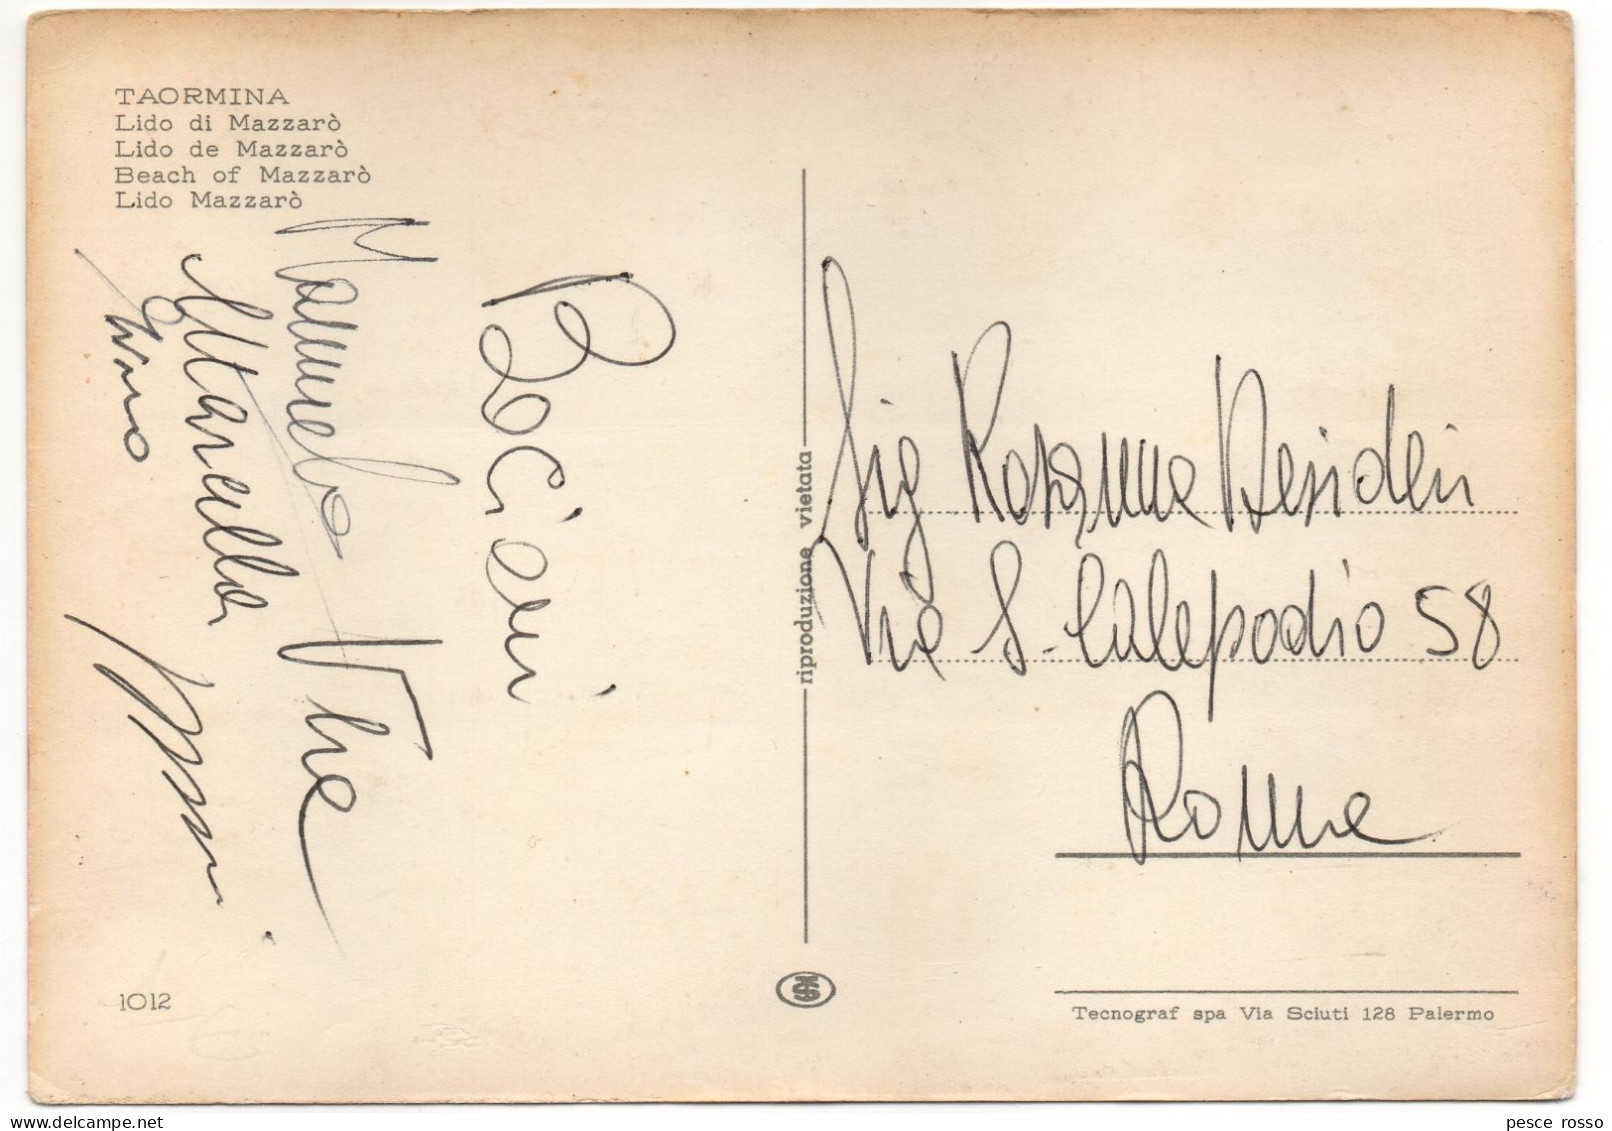 TAORMINA
Lido di Mazzarò
Lido de Mazzarò
Beach of Mazzarò
Lido Mazzarò
Bacioni
Manuela
Marcella
Ivano
riproduzione vietata
Sig Rosanna Desideri
Via S. Calepodio 58
Roma
1012
Tecnograf spa Via Sciuti 128 Palermo
pesce rosso